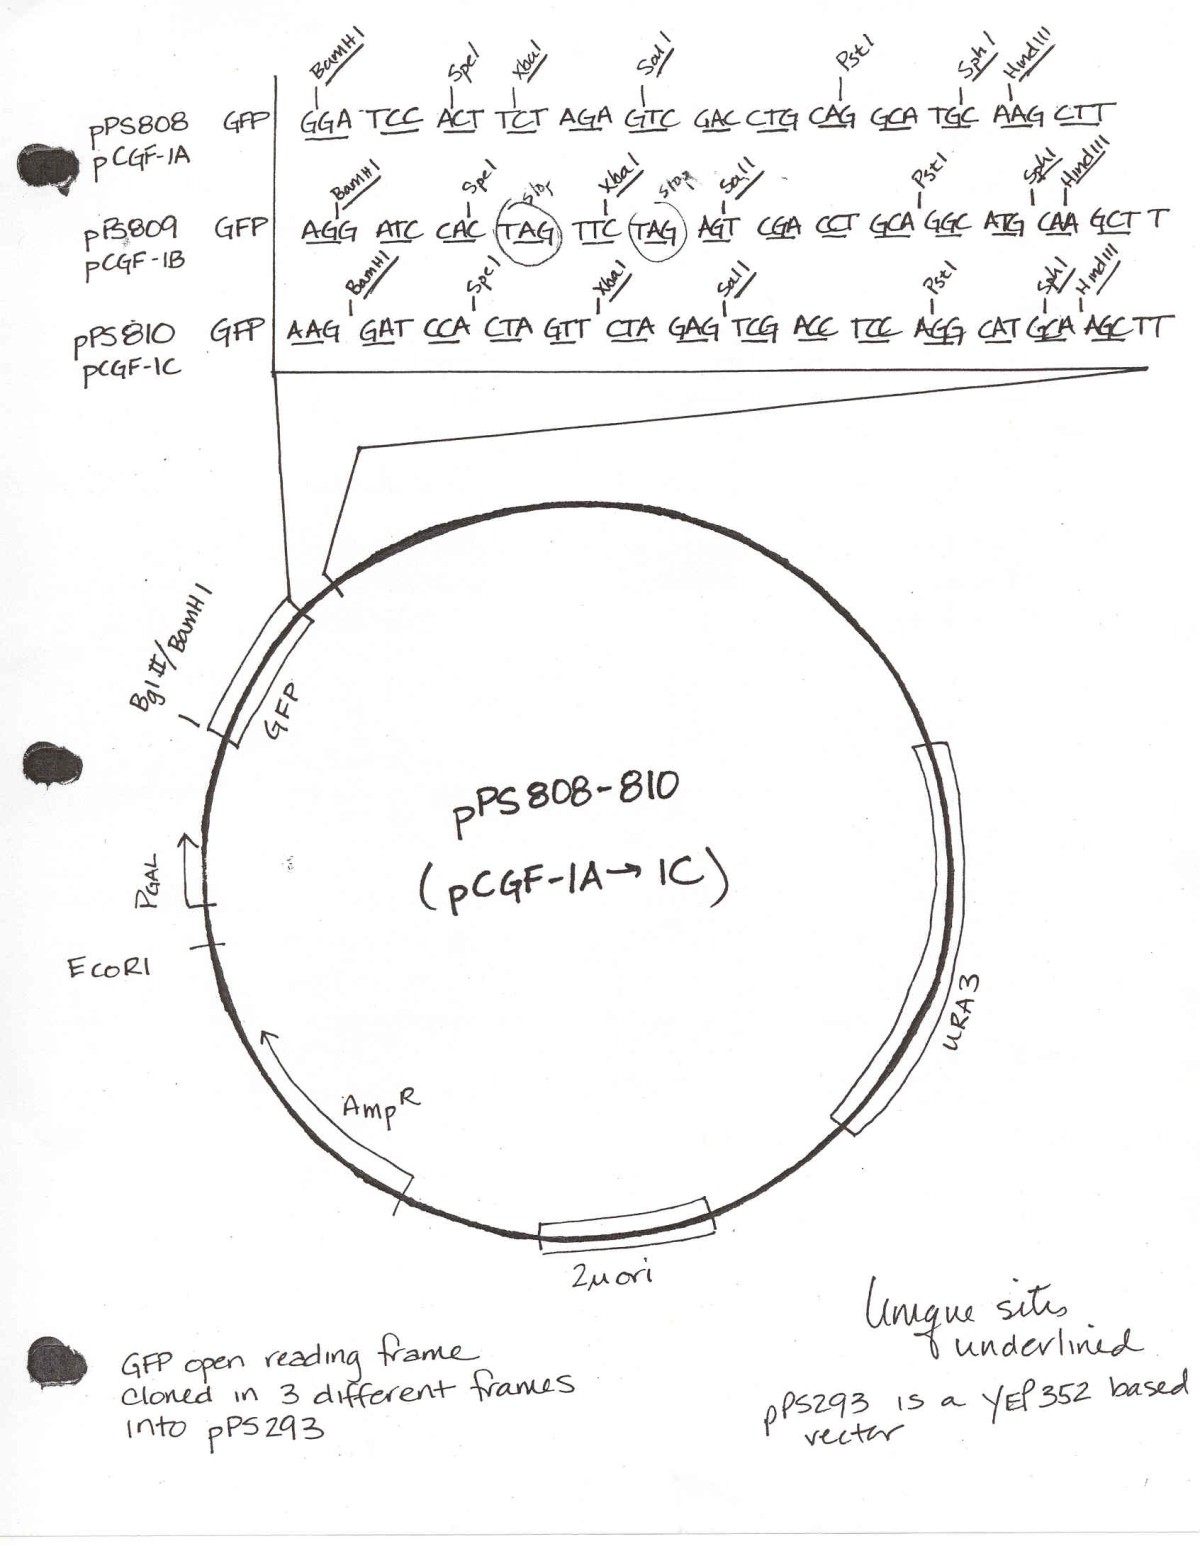 BamHI SpeI XbaI SalI PstI SphI HindIII
pPS808 GFP GGA TCC ACT TCT AGA GTC GAC CTG CAG GCA TGC AAG CTT
pCGF-1A
BamHI SpeI stop XbaI stop SalI PstI SphI HindIII
pPS809 GFP AGG ATC CAC TAG TTC TAG AGT CGA CCT GCA GGC ATG CAA GCT T
pCGF-1B
BamHI SpeI XbaI SalI PstI SphI HindIII
pPS810 GFP AAG GAT CCA CTA GTT CTA GAG TCG ACC TCC AGG CAT GCA AGC TT
pCGF-1C
Bgl II/BamHI
GFP
pPS808-810
(pCGF-1A→1C)
PGAL
EcoRI
AmpR
URA3
2µ ori
Unique sites
underlined
GFP open reading frame
cloned in 3 different frames
into pPS293
pPS293 is a YEP352 based
vector